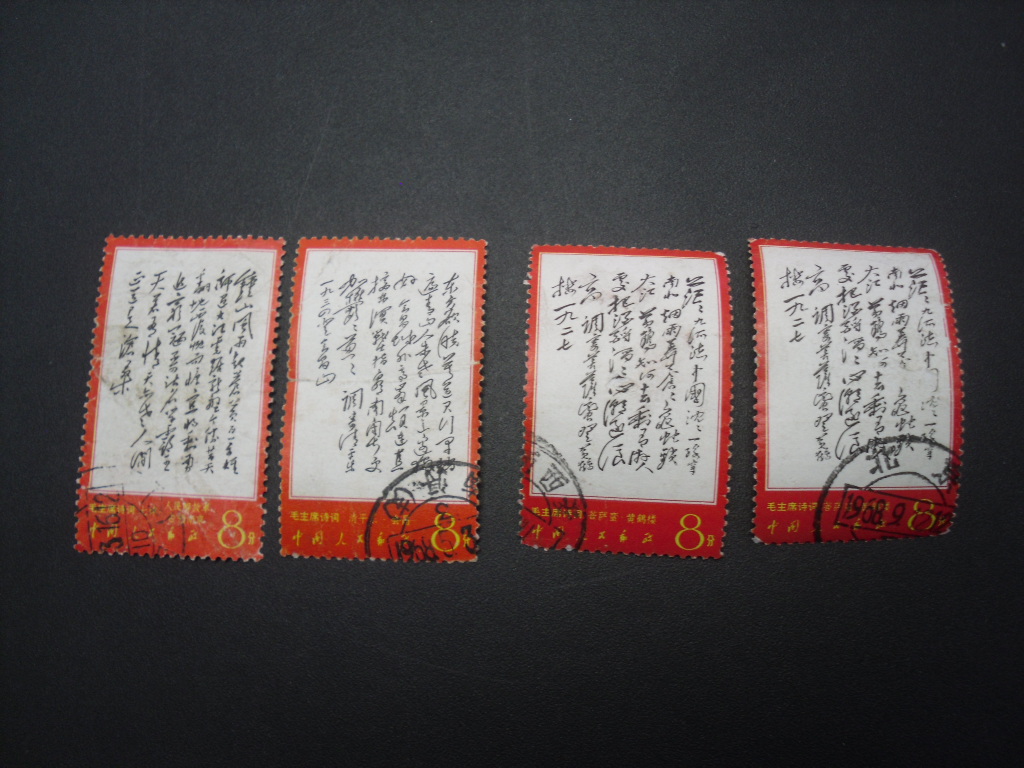 鐘山風雨起蒼黃百万雄
師过大江虎踞龍盤今勝昔天
翻地覆慨而慷宜將剩勇
追窮寇不可沽名學霸王
天若有情天亦老人间
正道是滄桑
毛主席诗词
中国人民邮政
8分
东方欲晓莫道君行早踏
遍青山人未老風景这边独
好 会昌城外高峰颠连直
接东溟战士指看南粤更
加
调寄清平乐
一九三四
毛主席诗词 清平乐 会昌
中国人民邮政
8分
茫茫九派流中國沈沈一線穿
南北烟雨莽苍苍龟蛇鎖
大江 黄鹤知何去剩有遊人
處把酒酹滔滔心潮逐浪
高 调寄菩萨蛮登黄鹤
楼一九二七
毛主席诗词 菩萨蛮·黄鹤楼
中国人民邮政
8分
茫茫九派流中國沈沈一線穿
南北烟雨莽苍苍龟蛇鎖
大江 黄鹤知何去剩有遊人
處把酒酹滔滔心潮逐浪
高 调寄菩萨蛮登黄鹤
楼一九二七
毛主席诗词
中国人民邮政
8分
北
1968.9